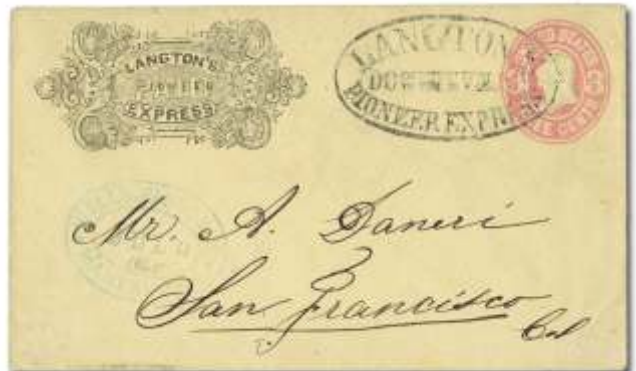 LANGTON'S
PIONEER
EXPRESS
LANGTON'S
PIONEER EXPRESS
Mr. A. Daneri
San Francisco
Cal